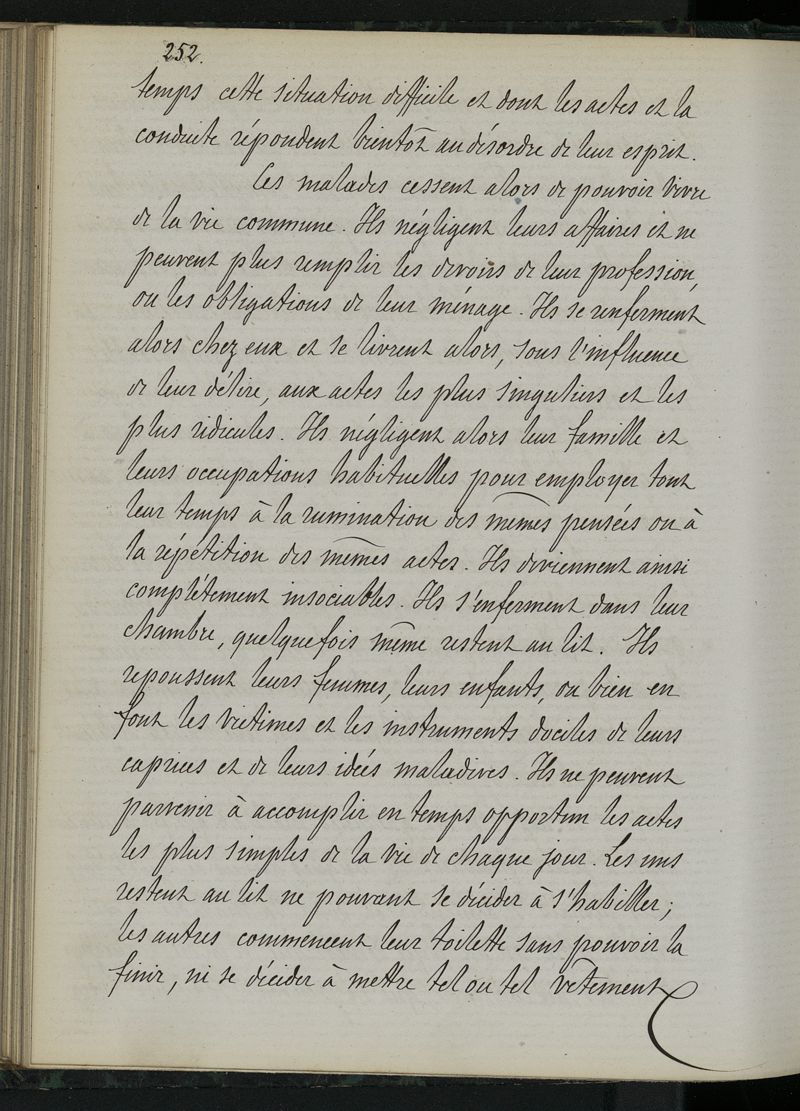 252.
temps cette situation difficile et dont les actes et la
conduite répondent bientôt au désordre de leur esprit.
Ces malades cessent alors de pouvoir vivre
de la vie commune. Ils négligent leurs affaires et ne
peuvent plus remplir les devoirs de leur profession,
ou les obligations de leur ménage. Ils se renferment
alors chez eux et se livrent alors, sous l'influence
de leur délire, aux actes les plus singuliers et les
plus ridicules. Ils négligent alors leur famille et
leurs occupations habituelles pour employer tout
leur temps à la rumination des mêmes pensées ou à
la répétition des mêmes actes. Ils deviennent ainsi
complètement insociables. Ils s'enferment dans leur
chambre, quelquefois même restent au lit. Ils
repoussent leurs femmes, leurs enfants, ou bien en
font les victimes et les instruments dociles de leurs
caprices et de leurs idées maladives. Ils ne peuvent
parvenir à accomplir en temps opportun les actes
les plus simples de la vie de chaque jour. Les uns
restent au lit ne pouvant se décider à s'habiller;
les autres commencent leur toilette sans pouvoir la
finir, ni se décider à mettre tel ou tel vêtement